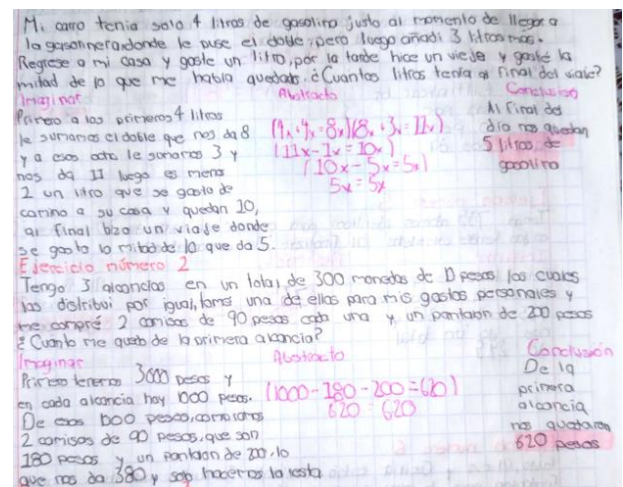 Mi carro tenia solo 4 litros de gasolina justo al momento de llegar a
la gasolinera donde le puse el doble, pero luego añadi 3 litros mas.
Regrese a mi casa y gaste un litro, por la tarde hice un viaje y gasté la
mitad de lo que me habia quedado. ¿Cuantos litros tenia al final del viaje?
Imaginar
Primero a los primeros 4 litros
le sumamos el doble que nos da 8
y a esos ocho le sumamos 3 y
nos da 11 luego es menos
1 un litro que se gasto de
camino a su casa y quedan 10,
al final hizo un viaje donde
se gasto la mitad de 10 que da 5.
Abstracto
(4x+4x=8x)(8x+3x=11x)
(11x-1x=10x)
(10x-5x=5x)
5x=5x
Conclusión
Al final del
dia nos quedan
5 litros de
gasolina
Ejercicio número 2
Tengo 3 alcancias en un total de 300 monedas de 10 pesos las cuales
las distribui por igual, tome una de ellas para mis gastos personales y
me compré 2 camisas de 90 pesos cada una y un pantalon de 200 pesos
¿Cuanto me quedo de la primera alcancia?
Imaginar
Primero tenemos 3000 pesos y
en cada alcancia hay 1000 pesos.
De esos 1000 pesos, compramos
2 camisas de 90 pesos, que son
180 pesos y un pantalon de 200, lo
que nos da 380 y solo hacemos la resta
Abstracto
(1000-180-200=620)
620=620
Conclusión
De la
primera
alcancia
nos quedaron
620 pesos